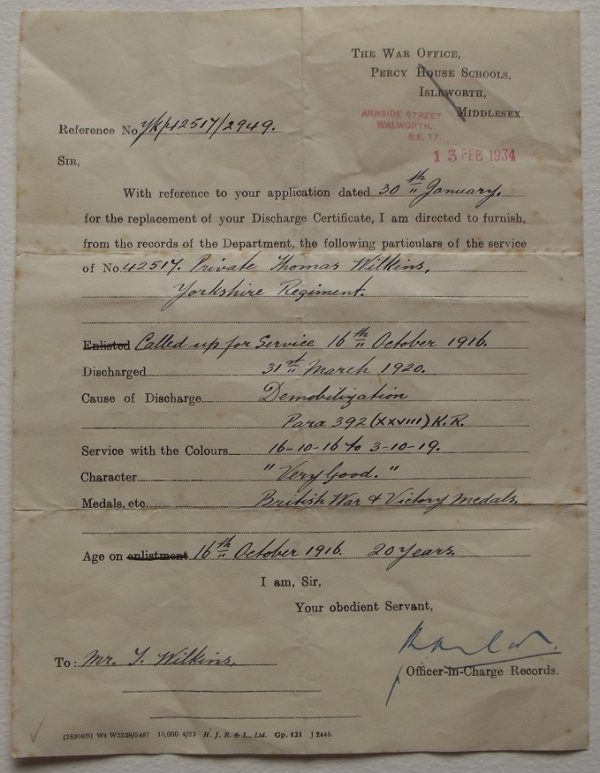 THE WAR OFFICE,
PERCY HOUSE SCHOOLS,
ISLEWORTH,
MIDDLESEX.
ARNSIDE STREET,
WALWORTH,
S.E. 17.
13 FEB 1934
Reference No. 42517/2949.
SIR,
With reference to your application dated 30th January.
for the replacement of your Discharge Certificate, I am directed to furnish,
from the records of the Department, the following particulars of the service
of No. 42517. Private Thomas Wilkins,
Yorkshire Regiment.
Enlisted Called up for Service 16th October 1916.
Discharged 31st March 1920.
Cause of Discharge Demobilization
Para 392 (XXVIII) K.R.
Service with the Colours 16-10-16 to 3-10-19.
Character "Very Good."
Medals, etc. British War & Victory Medals.
Age on enlistment 16th October 1916. 20 years.
I am, Sir,
Your obedient Servant,
To: Mr. T. Wilkins.
Officer-in-Charge Records.
(25306B) Wt W2339/5487 10,000 4/33 H. J. R. & L., Ltd. Gp. 121 J 2445.